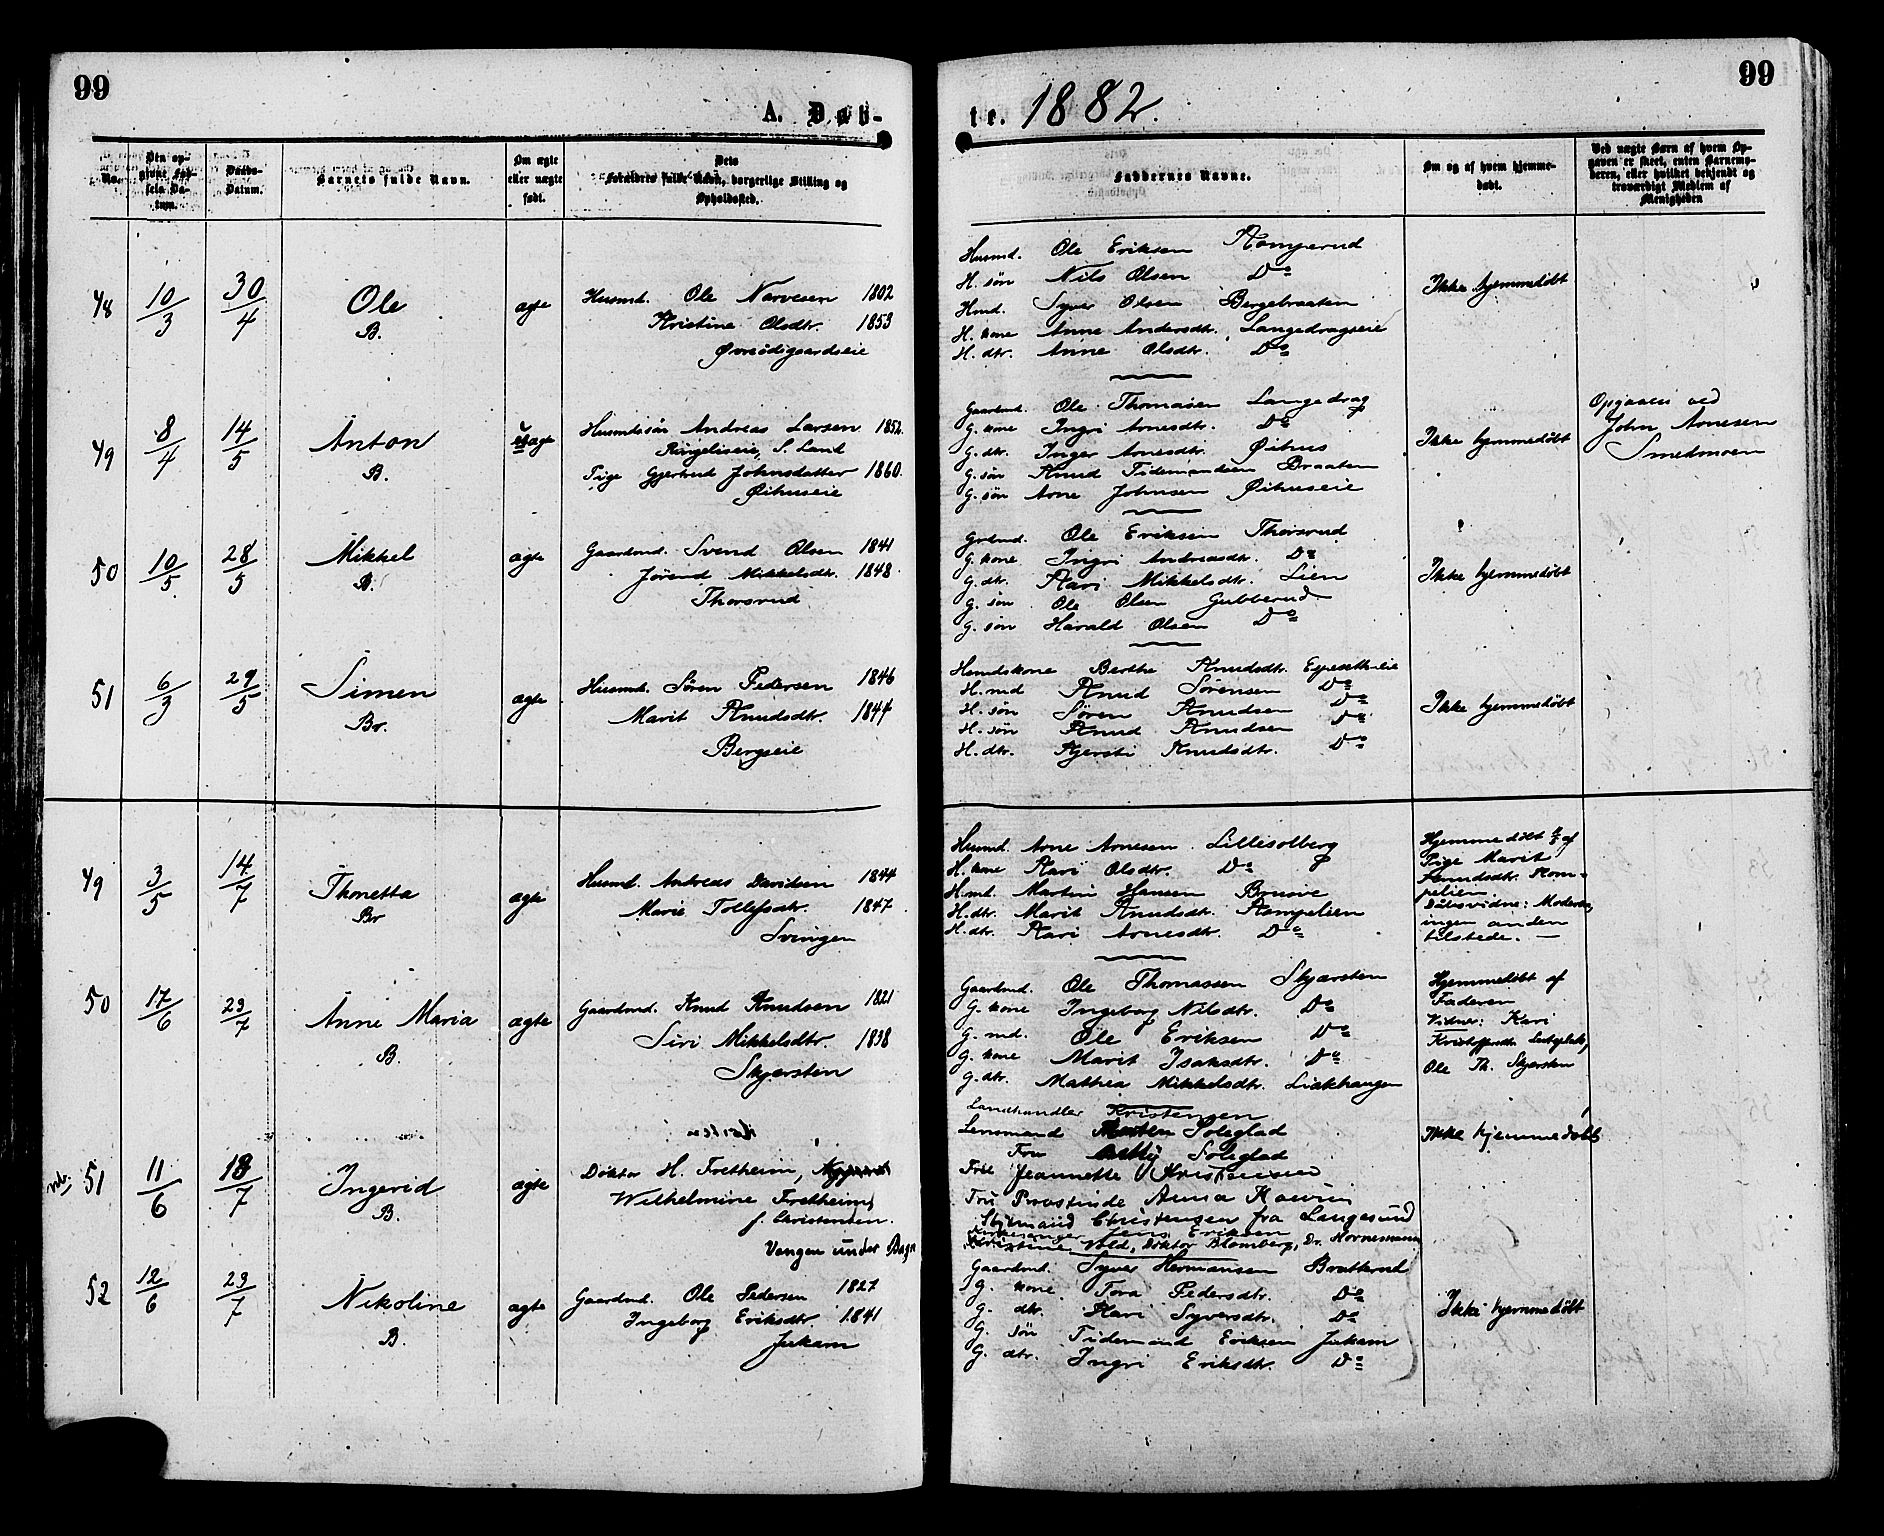 99
A. Døb-
No.
Den op-
givne Fød-
sels Da-
tum.
Daabs-
Datum.
Barnets fulde Navn.
Om ægte
eller uægte
født.
Dets
Forældres fulde Navn, borgerlige Stilling og
Opholdssted.
48
10/3
30/4
Ole
B.
ægte
Husmd. Ole Narvesen 1802
Kristine Olsdtr. 1853
49
8/4
14/5
Anton
B.
uægte
Husmdssøn Andreas Larsen 1852
Ringeliseie, S. Land
Pige Gjertrud Johnsdatter 1860
Øihuseie
50
10/5
28/5
Mikkel
B.
ægte
Gaardmd. Svend Olsen 1841
Jørend Mikkelsdtr. 1848
Thorsrud
51
6/3
29/5
Simen
Br.
ægte
Husmd. Søren Pedersen 1846
Marit Knudsdtr. 1847
Bergseie
49
3/5
14/7
Thonetta
Br
ægte
Husmd. Andreas Davidsen 1844
Marie Tollefsdtr. 1847
Svingen
50
17/6
23/7
Anne Maria
B.
ægte
Gaardmd. Knud Knudsen 1821
Siri Mikkelsdtr. 1838
Skjersten
51
11/6
18/7
Ingerid
B.
ægte
Doktor H. Fretheim,
Wilhelmine Fretheim
f. Christensen.
Vangen under Bagn
52
12/6
23/7
Nikoline
B.
ægte
Gaardmd. Ole Pedersen 1827
Ingeborg Eriksdtr. 1841
Jukam
99
te. 1882.
Faddernes Navne.
Om og af hvem hjemme-
døbt.
Ved uægte Børn af hvem Op-
gaven er skeet, enten Barnemo-
deren, eller hvilket bekjendt og
troværdigt Medlem af
Menigheden
Husmd. Ole Eriksen Kamperud
H. søn Nils Olsen Do
Hmd. Syver Olsen Bergebraaten
H. kone Anne Andersdtr. Langedragseie
H. dtr. Anne Olsdtr. Do
Ikke hjemmedøbt
Gaardmd. Ole Thomasen Langedrag
G. kone Ingri Arnesdtr. Do
G. dtr. Inger Arnesdtr. Øihus
G. søn Knud Tidemandsen Braaten
G. søn Arne Johnsen Øihuseie
Ikke hjemmedøbt
Opgaven ved
John Arnesen
Smedmoen
Grdmd. Ole Eriksen Thorsrud
G. kone Ingri Andreasdtr. Do
G. dtr. Kari Mikkelsdtr. Lien
G. søn Ole Olsen Gubberud
G. søn Harald Olsen Do
Ikke hjemmedøbt
Husmdskone Berthe Knudsdtr.
H. md Knud Sørensen Do
H. søn Søren Knudsen Do
H. søn Knud Knudsen Do
H. dtr. Kjersti Knudsdtr. Do
Ikke hjemmedøbt
Husmd. Arne Arnesen Lillesolberg
H. kone Kari Olsdtr. Do
H. md. Martin Hansen Brueie
H. dtr. Marit Knudsdtr. Kampelien
H. dtr. Kari Arnesdtr. Do
Hjemmedøbt af
Pige Marit
Knudsdtr. Kam-
pelien
Daabsvidne: Moderen,
ingen anden
tilstede. —
Gaardmd. Ole Thomassen Skjærsten
G. kone Ingeborg Nilsdtr. Do
G. md. Ole Eriksen Do
G. kone Marit Isaksdtr. Do
G. dtr. Mathea Mikkelsdtr. Liakhaugen
Hjemmedøbt af
Faderen
Vidner: Kari
Ole Th. Skjersten
Landhandler Kristensen
Lensmand Soleglad
Fru Soleglad
Frk Jeannette Kristensen
Fru Prostinde Anna
Styrmand Christensen fra Langesund
Kirkesanger Jens Eriksen
Kristine Vold, Doktor Blomberg, Dr. Hornemann
Ikke hjemmedøbt
Gaardmd. Syver Hermansen Bratterud
G. kone Tora Pedersdtr. Do
G. dtr. Kari Syversdtr. Do
G. søn Tidemand Eriksen Jukam
G. dtr. Ingri Eriksdtr. Do
Ikke hjemmedøbt